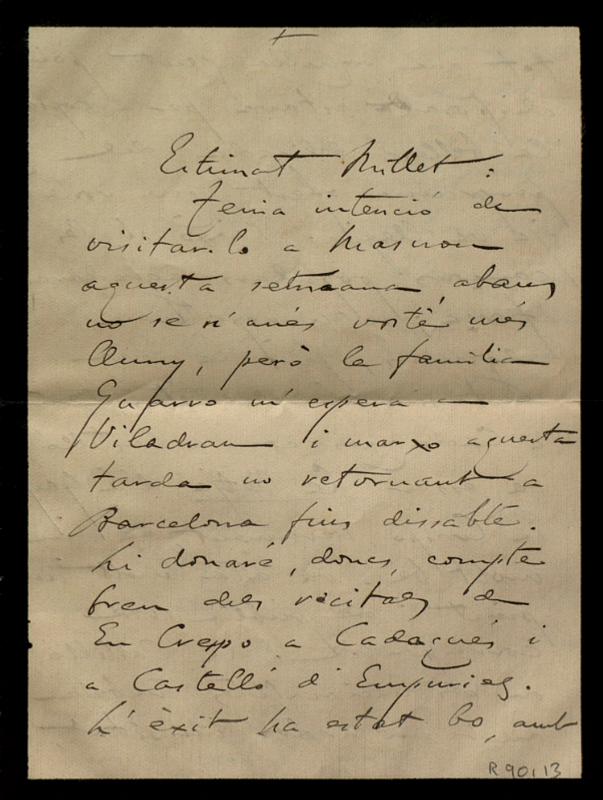 Estimat Millet:
Tenia intenció de
visitar-lo a Masnou
aquesta setmana, abans
no se n'anés vostè més
lluny, però la família
Guarro m'espera a
Viladrau i marxo aquesta
tarda no retornant a
Barcelona fins dissabte.
Li donaré, doncs, compte
breu dels recitals de
En Crespo a Cadaqués i
a Castelló d'Empuries.
L'èxit ha estat bo, amb
R 90,13